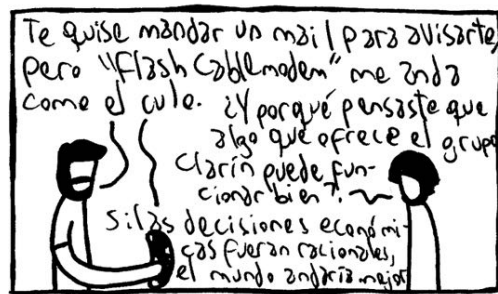 Te quise mandar un mail para avisarte,
pero "Flash Cablemodem" me anda
como el culo.
¿Y porqué pensaste que
algo que ofrece el grupo
Clarín puede fun-
cionar bien?!
Si las decisiones económi-
cas fueran racionales,
el mundo andaría mejor